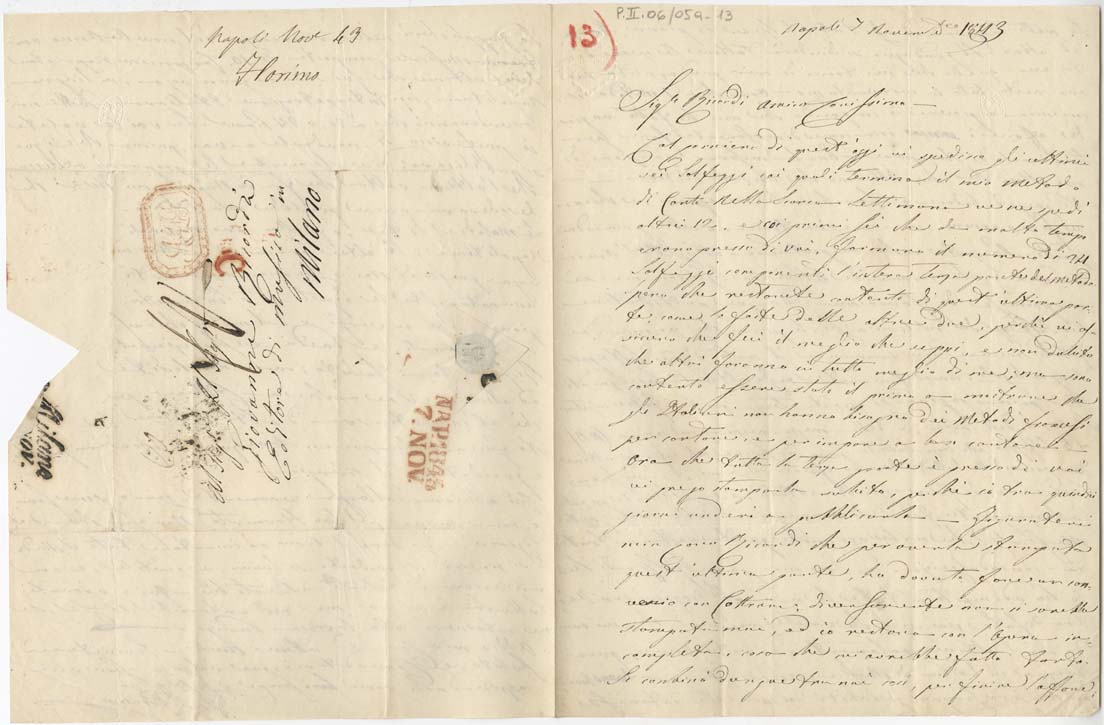 P.II.06/059-13
Napoli Nov.e 43
Florimo
Al Sigr Sigr
Giovanni Ricordi
Editore di musica in
Milano
NAP. 1843
7. NOV
Milano
NOV.
13
Napoli 7 Novembre 1843
Sigr Ricordi Amico Carissimo —
Col procaccio di quest'oggi vi spedisco gli ultimi
sei Solfeggi coi quali termina il mio metodo
di Canto. Nella scorsa settimana ve ne spedì
altri 12, e coi primi sei che da molto tempo
erano presso di voi, formano il numero di 24
Solfeggi componenti l'intera terza parte del metodo
spero che resterete contento di quest'ultima par-
te, come lo foste delle altre due, perchè vi as-
sicuro che feci il meglio che seppi, e non dubito
che altri faranno in tutto meglio di me, ma son
contento essere stato il primo a mostrare che
gl'Italiani non hanno bisogno dei Metodi francesi
per cantare, e per imparare a ben cantare —
Ora che tutta la terza parte è presso di voi
vi prego stamparla subito, perchè io tra quindici
giorni anderò a pubblicarla — Figuratevi
mio caro Ricordi che per averla stampata
quest'ultima parte, ho dovuto fare un con-
venio con Cottrau; diversamente non si sarebbe
stampata mai, ed io restava con l'Opera in-
completa, cosa che mi avrebbe fatto torto.
Si combinò dunque tra noi così, per finire l'affare,